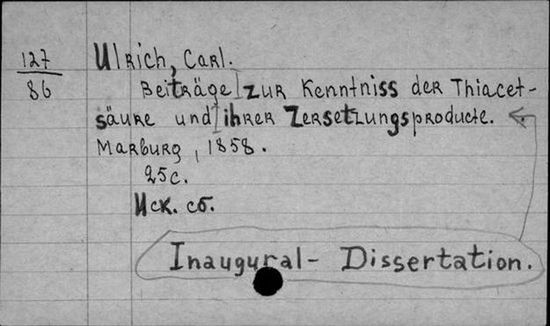 127
86
Ulrich, Carl.
Beiträge zur Kenntniss der Thiacet-
säure und ihrer Zersetzungsproducte.
Marburg, 1858.
25с.
Иск. сб.
Inaugural- Dissertation.